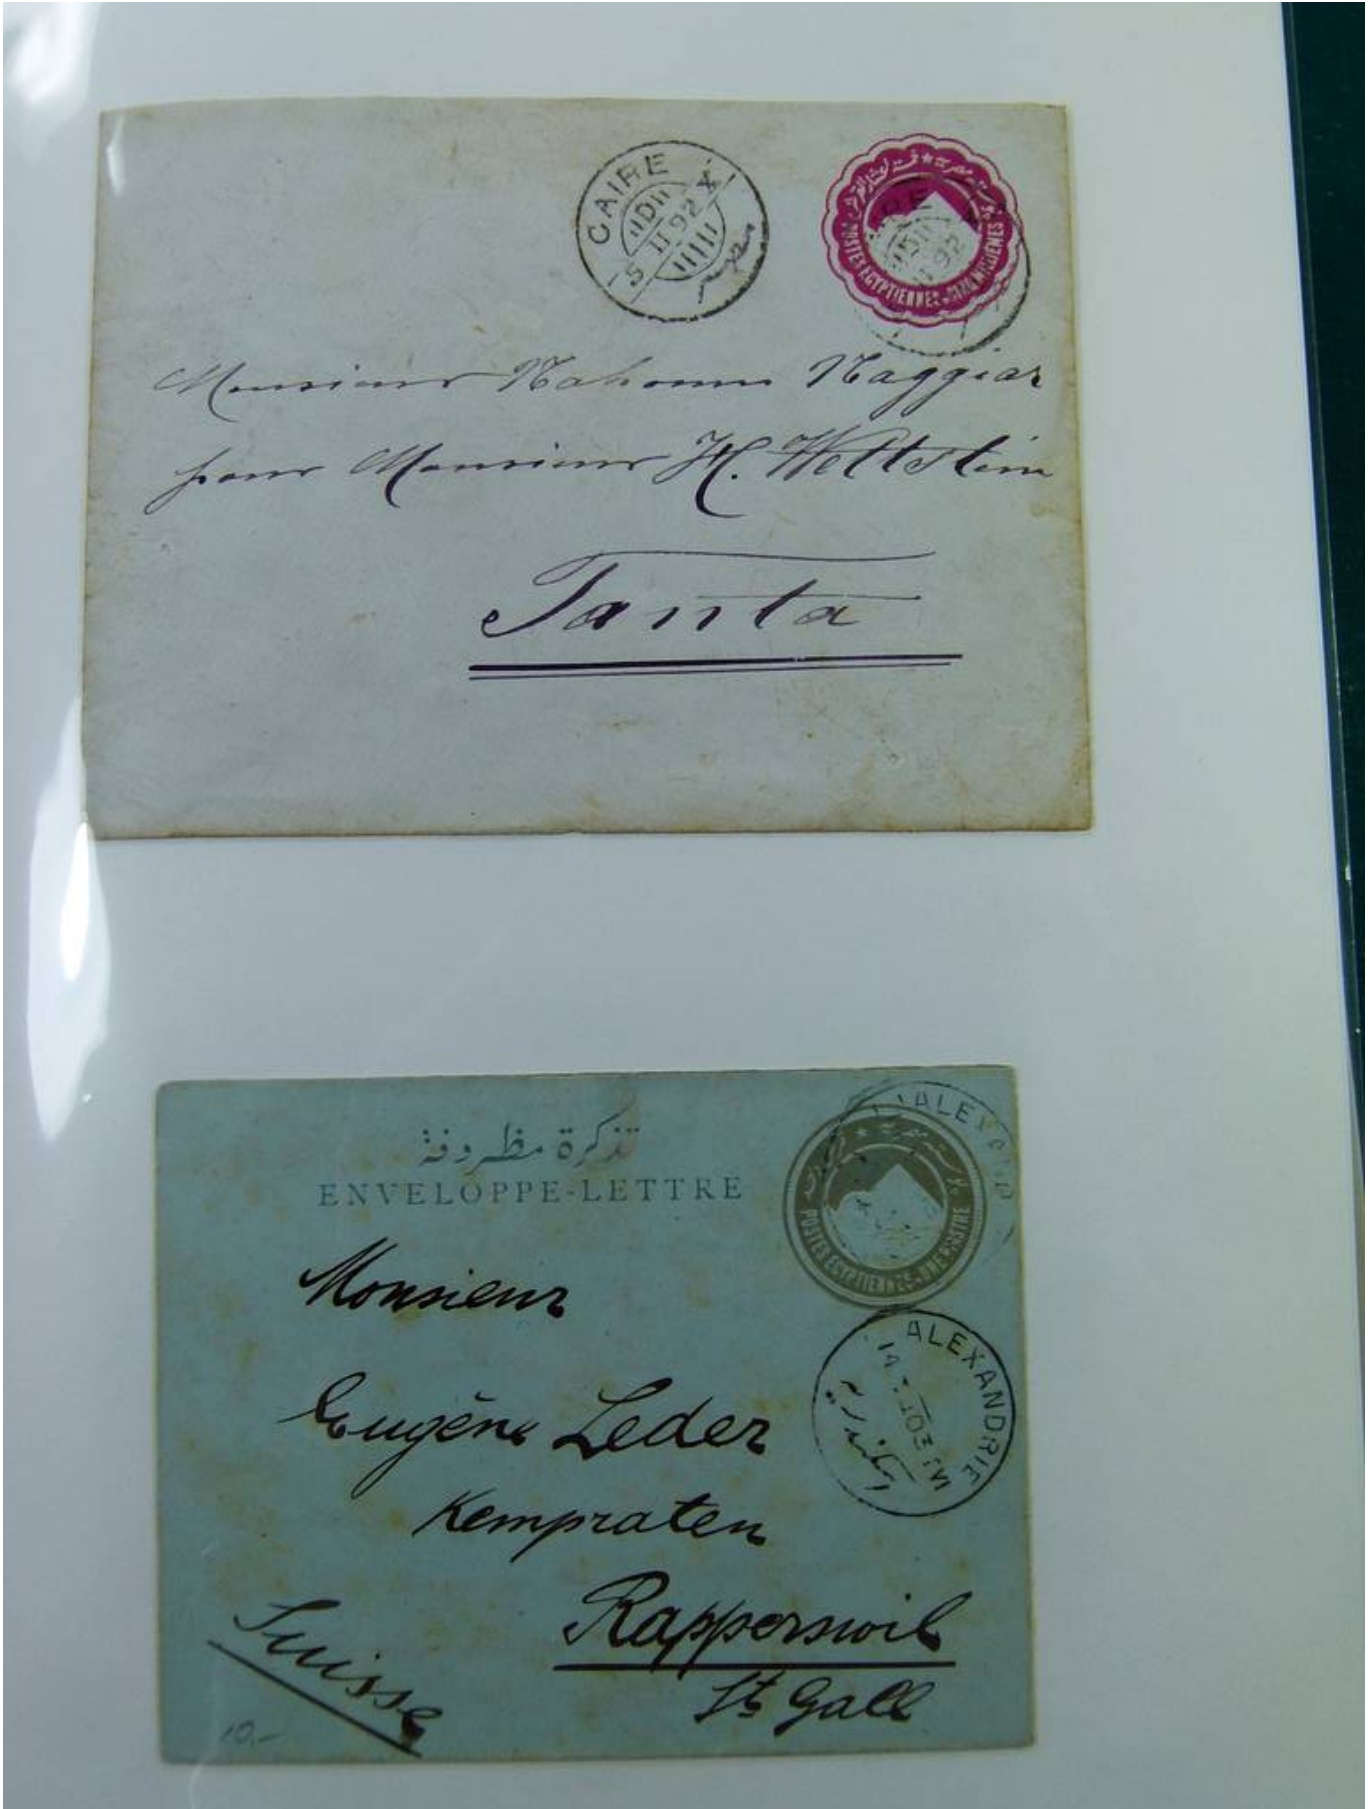 CAIRE
5 II 92 X
D
مصر
POSTES EGYPTIENNES CINQ MILLIEMES
Monsieur Nahoum Naggiar
pour Monsieur H. Wettstein
Tanta
تذكرة مظروفة
ENVELOPPE-LETTRE
بوستة مصرية
POSTES EGYPTIENNES UNE PIASTRE
ALEXAND
ALEXANDRIE
اسكندرية
Monsieur
Eugène Leder
Kempraten
Rapperswil
St Gall
Suisse
10.-